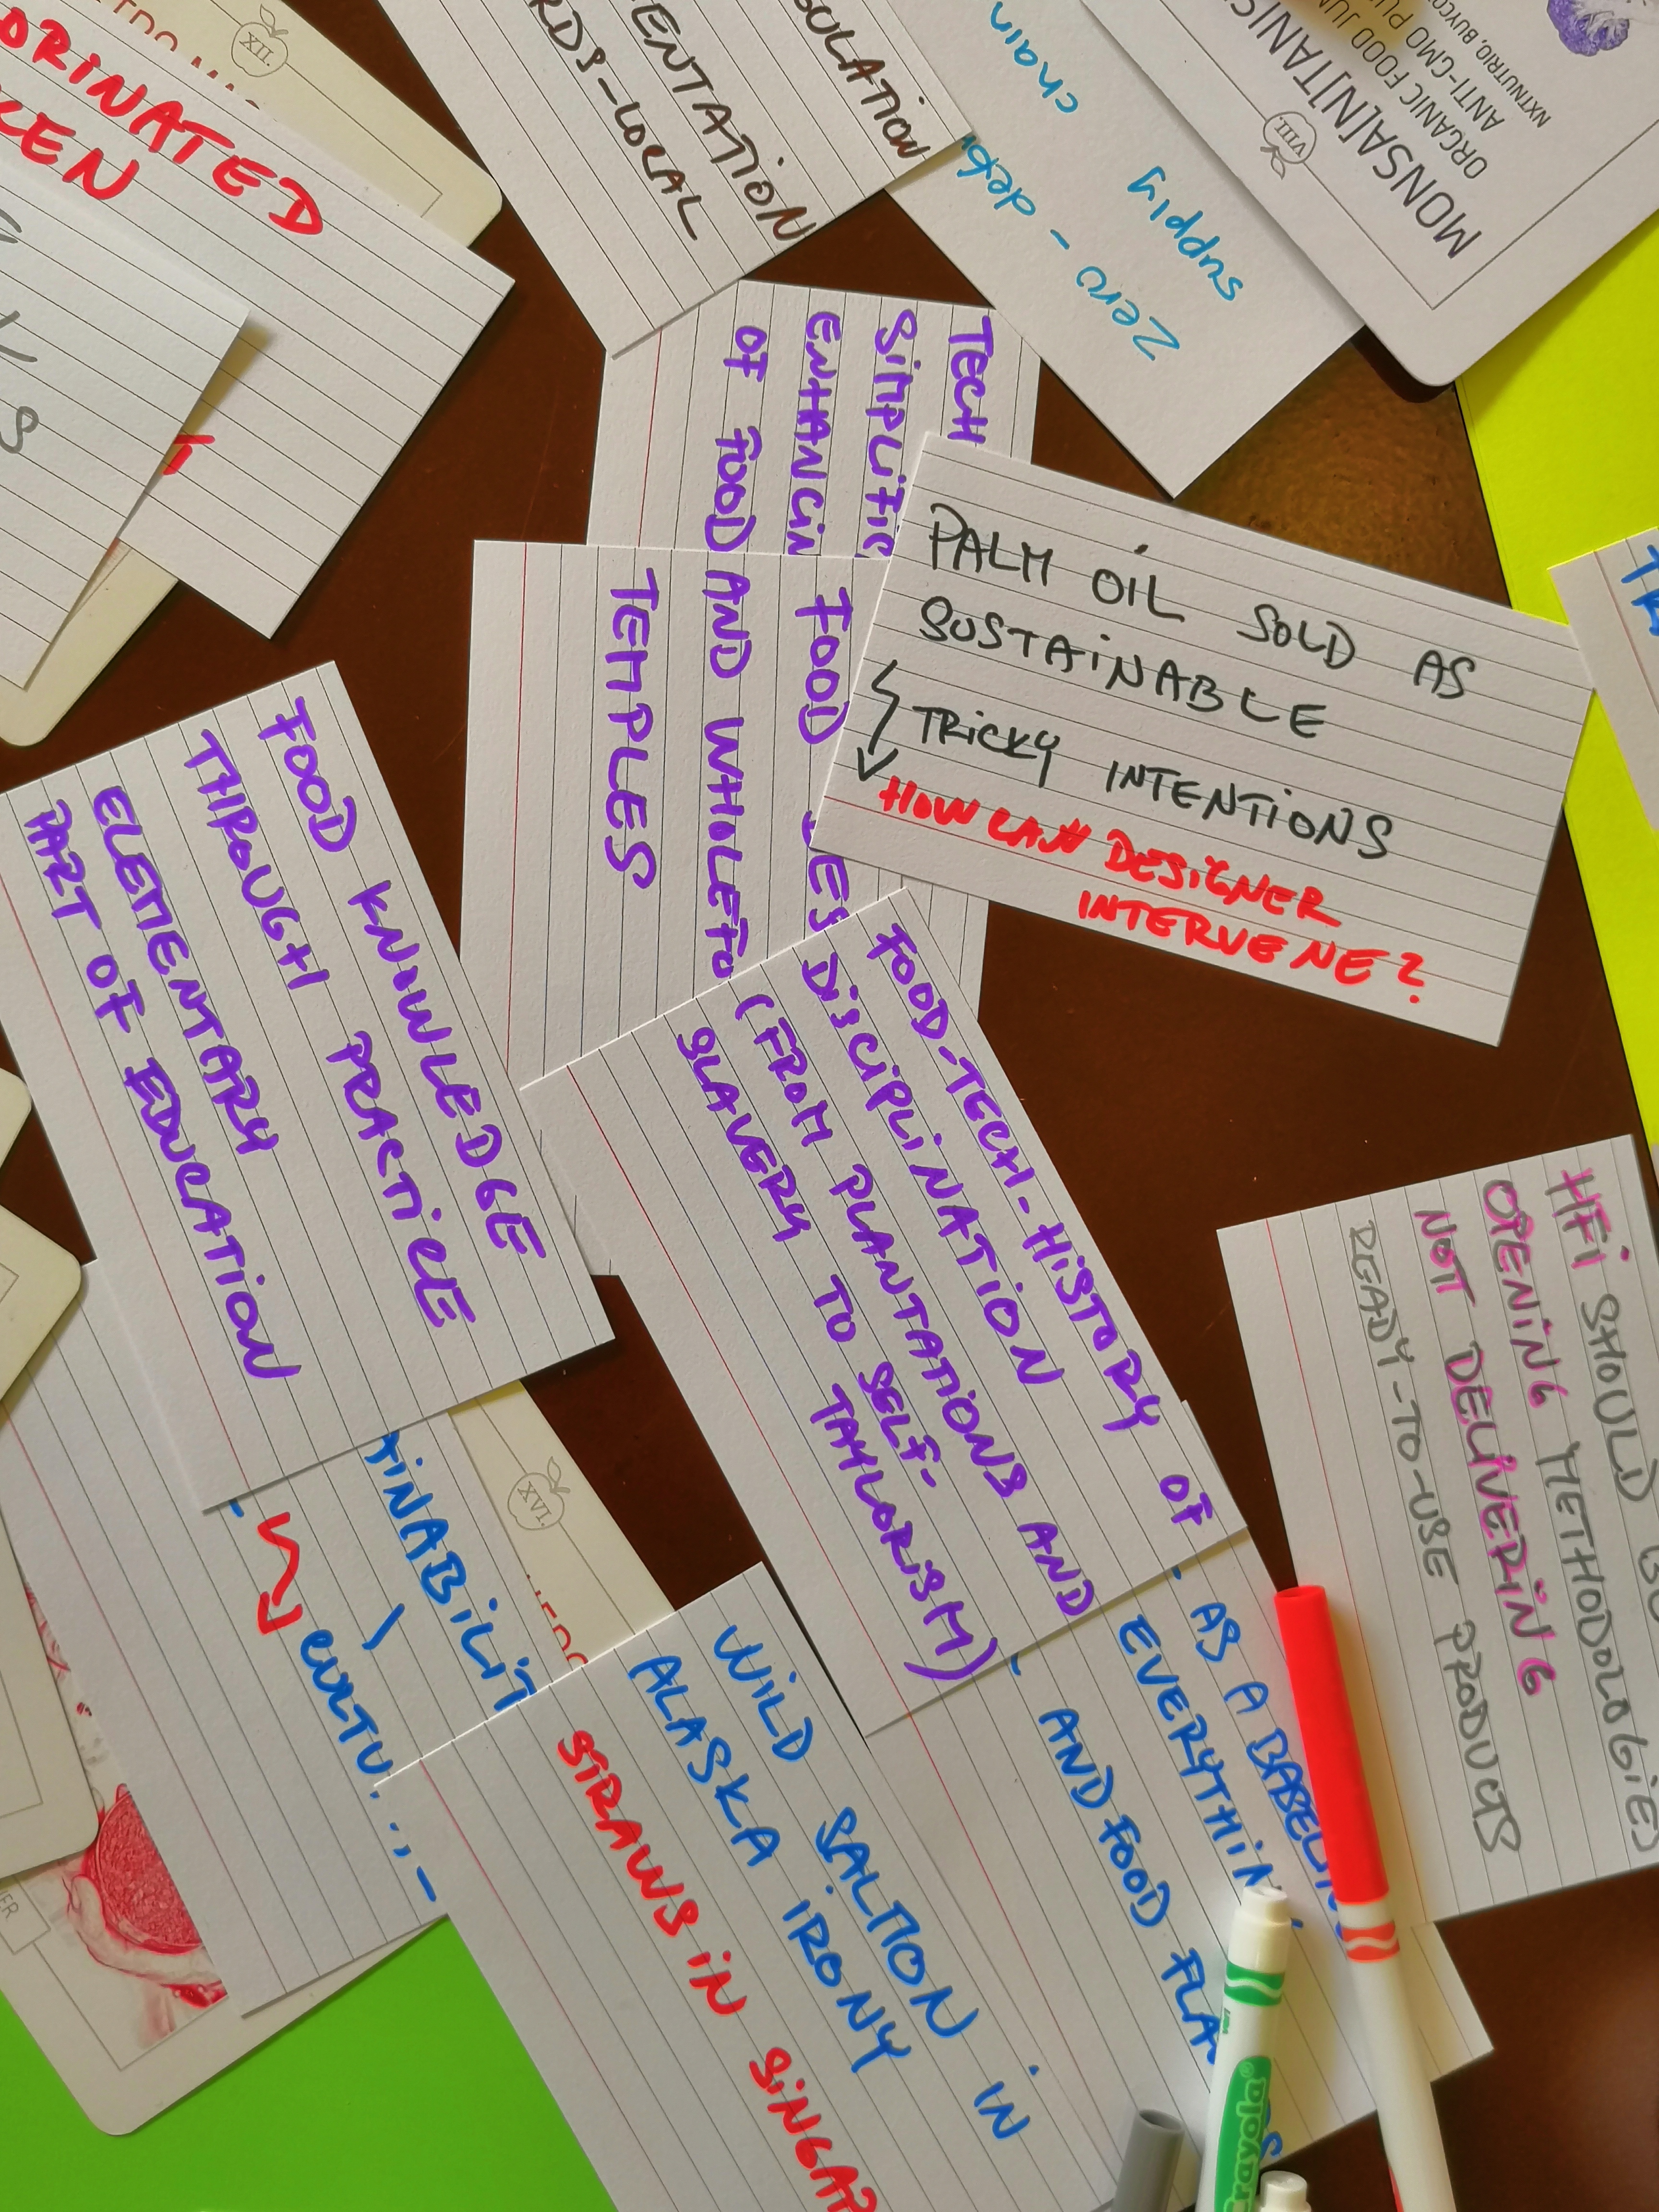 ORINATED
XII.
ULATION
ENTATION
RDS-LOCAL
Zero-
supply
chain
VIII.
MONSA[N]TANIS
ORGANIC FOOD JUN
ANTI-GMO PU
NXTNUTRIO, BUYCO
TECH
SIMPLIFIC
ENHANCIN
OF FOOD
FOOD
AND WHOLEFO
TEMPLES
PALM OIL SOLD AS
SUSTAINABLE
TRICKY INTENTIONS
HOW CAN DESIGNER
INTERVENE?
FOOD KNOWLEDGE
THROUGH PRACTICE
ELEMENTARY
PART OF EDUCATION
FOOD-TECH-HISTORY OF
DISCIPLINATION
(FROM PLANTATIONS AND
SLAVERY TO SELF-
TAYLORISM)
HFI SHOULD
OPENING METHODOLOGIES
NOT DELIVERING
READY-TO-USE PRODUCTS
TINABILIT
CULTU
XVI.
AS A BABEL
EVERYTHIN
AND FOOD FLA
WILD SALMON IN
ALASKA IRONY
STRAWS IN SINGAP
Crayola